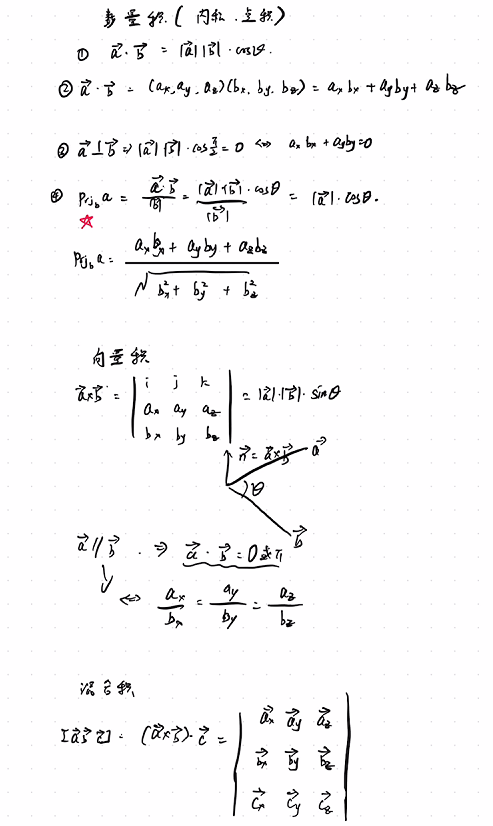 数量积.(内积.点积)
① a⃗·b⃗ = |a⃗||b⃗|·cosθ.
② a⃗·b⃗ = (ax,ay,az)(bx,by,bz) = axbx+ayby+azbz
③ a⃗⊥b⃗ ⇒ |a⃗||b⃗|·cosπ/2 = 0 ⇔ axbx+ayby=0
④ Prjb a = a⃗·b⃗/|b⃗| = |a⃗|·|b⃗|·cosθ/|b⃗| = |a⃗|·cosθ.
☆
Prjb a = axbx+ayby+azbz/√bx²+by²+bz²
向量积
a⃗×b⃗ = | i j k | = |a⃗|·|b⃗|·sinθ
ax ay az
bx by bz
n⃗ = a⃗×b⃗ a⃗
θ
b⃗
a⃗∥b⃗ . ⇒ a⃗·b⃗ = 0或π
⇔ ax/bx = ay/by = az/bz
混合积
[a⃗b⃗c⃗] = (a⃗×b⃗)·c⃗ = | a⃗x a⃗y a⃗z |
b⃗x b⃗y b⃗z
c⃗x c⃗y c⃗z